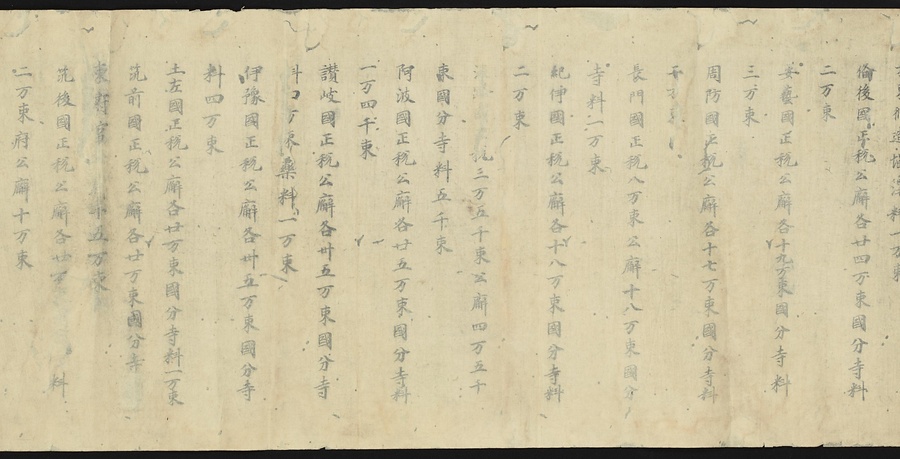 倫後國正税公廨各廿四万束國分寺料
二万束
安藝國正税公廨各十九万束國分寺料
三万束
周防國正税公廨各十七万束國分寺料
長門國正税八万束公廨十八万束國分
寺料一万束
紀伊國正税公廨各十八万束國分寺料
二万束
三万五千束公廨四万五千
束國分寺料五千束
阿波國正税公廨各廿五万束國分寺料
一万四千束
讃岐國正税公廨各卅五万束國分寺
万束藥料一万束
伊豫國正税公廨各卅五万束國分寺
料四万束
土左國正税公廨各廿万束國分寺料一万束
筑前國正税公廨各廿万束國分寺
束府官 五万束
筑後國正税公廨各廿万 料
二万束府公廨十万束